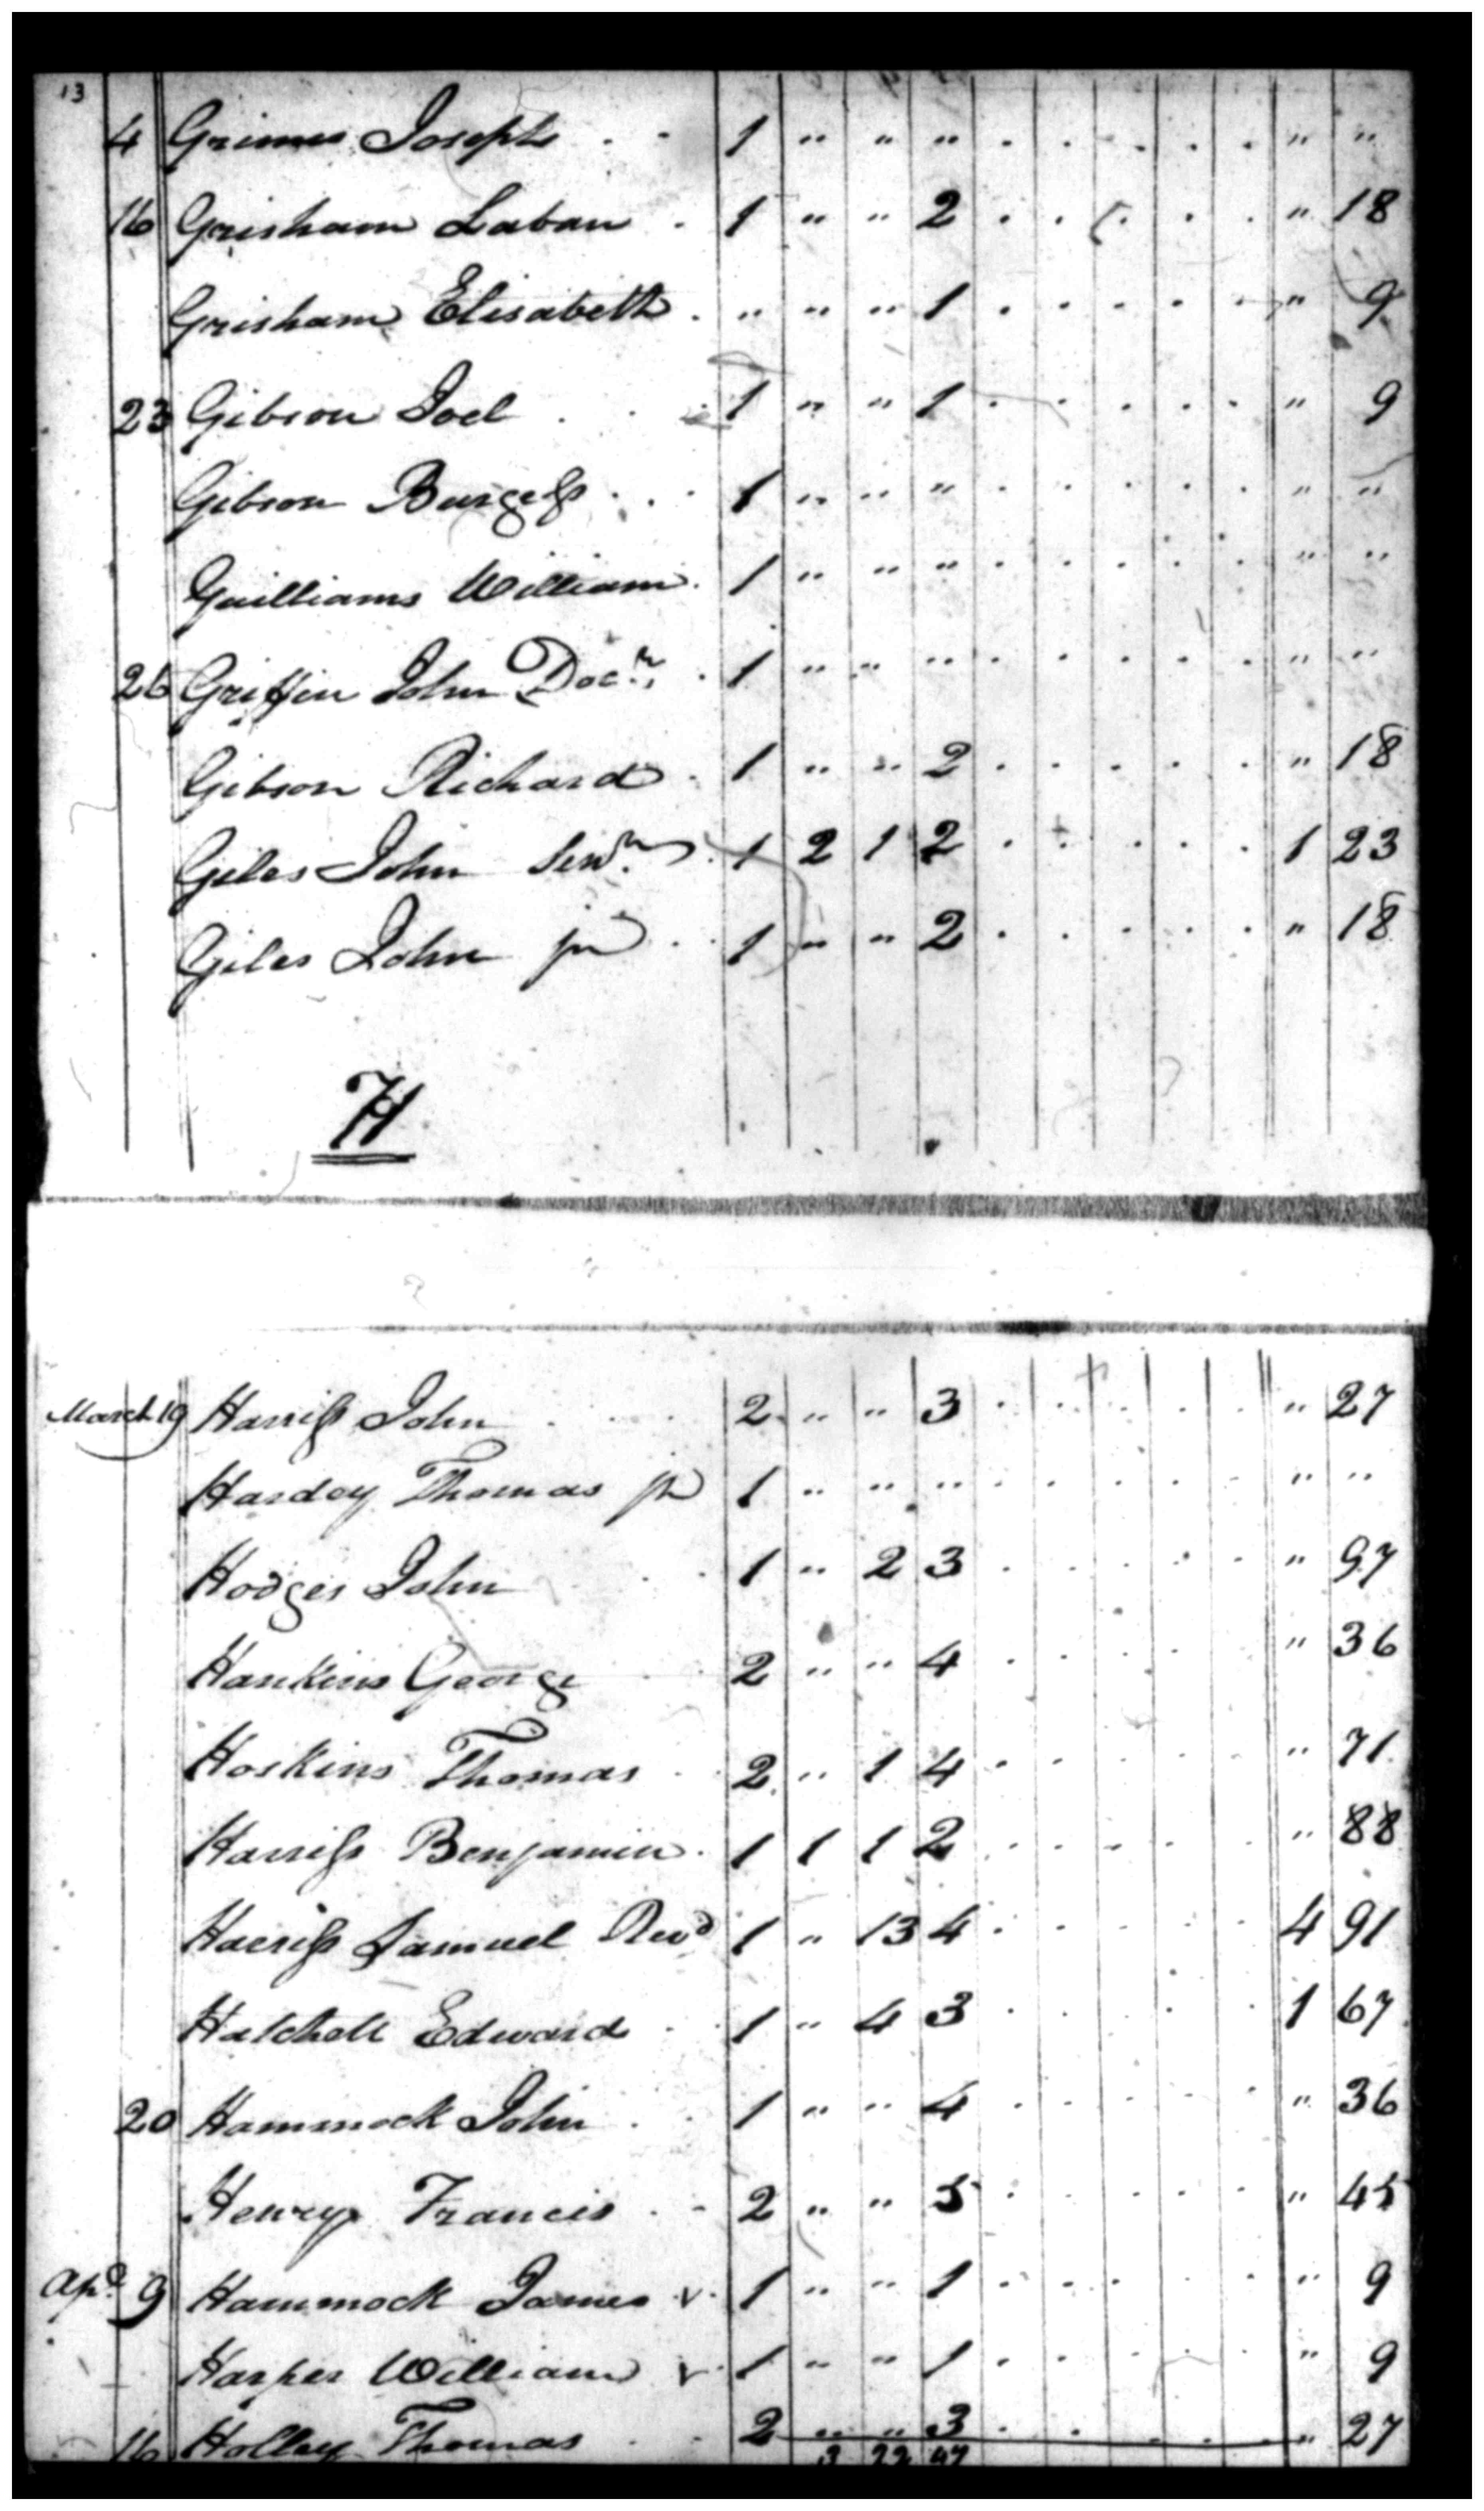 13
4 Grimes Joseph . - 1 " " " . . . . . " "
16 Grisham Laban . 1 " " 2 . . . . . " 18
Grisham Elisabeth . " " " 1 . . . . . " 9
23 Gibson Joel . . 1 " " 1 . . . . . " 9
Gibson Burgess . . 1 " " " . . . . . " "
Guilliams William . 1 " " " . . . . . " "
26 Griffin John Docr. . 1 " " " . . . . . " "
Gibson Richard . 1 " " 2 . . . . . " 18
Giles John Senr. . 1 2 1 2 . . . . . 1 23
Giles John jr . . 1 " " 2 . . . . . " 18
H
March 19 Harriss John . . . 2 " " 3 . . . . . " 27
Hardey Thomas jr 1 " " " . . . . . " "
Hodges John . . 1 " 2 3 . . . . . " 97
Hankins George . . 2 " " 4 . . . . . " 36
Hoskins Thomas . . 2 " 1 4 . . . . . " 71
Harriss Benjamin . 1 1 1 2 . . . . . " 88
Harriss Samuel Revd 1 " 13 4 . . . . . 4 91
Hatchett Edward . . 1 " 4 3 . . . . . 1 67
20 Hammock John . . 1 " " 4 . . . . . " 36
Henry Francis . - 2 " " 5 . . . . . " 45
Apl. 9 Hammock James v . 1 " " 1 . . . . . " 9
Harper William v . 1 " " 1 . . . . . " 9
16 Holley Thomas . . 2 " " 3 . . . . . " 27
3 22 47